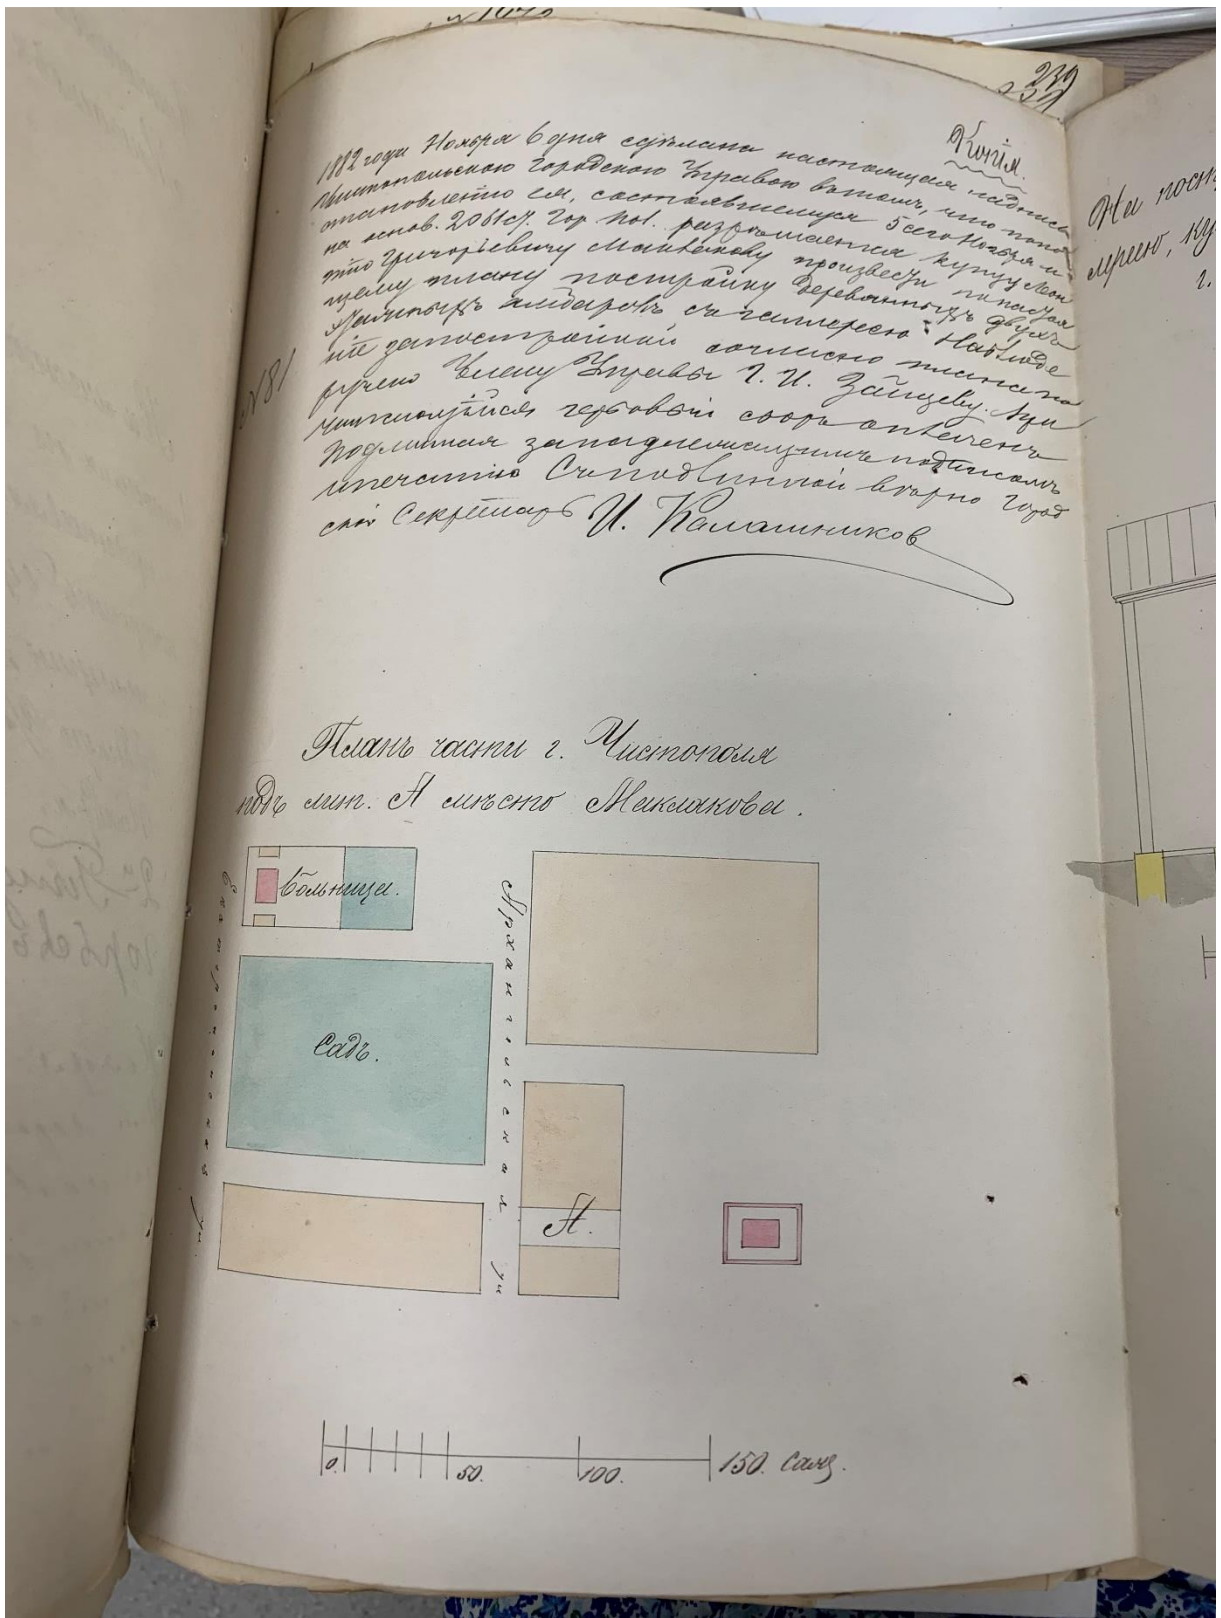 239
Копія.
1882 года Ноября 6 дня сдѣлана настоящая надпись
Чистопольскою Городскою Управою въ томъ, что по по
становленію ея, состоявшемуся 5 сего Ноября и
на основ. 2061 ст. Гор. Пол. разрѣшается купцу Леон
тію Григорьевичу Маклакову произвести по насто
щему плану постройку деревянныхъ двухъ
амбаровъ съ галлереею. Наблюде
ніе за постройкой согласно плана по
ручено Члену Управы Г. И. Зайцеву. При
читающійся гербовый сборъ оплаченъ
Подлинная за надлежащимъ подписомъ
и печатью Съ подлинной вѣрно Город
ской Секретарь И. Калашников
№ 81
Планъ части г. Чистополя
подъ лит. А мѣсто Маклакова.
Больница.
Садъ.
Архангельская ул
Екатерининская ул.
А.
0. 50. 100. 150. саж.
На пост
лереею, ку
г.